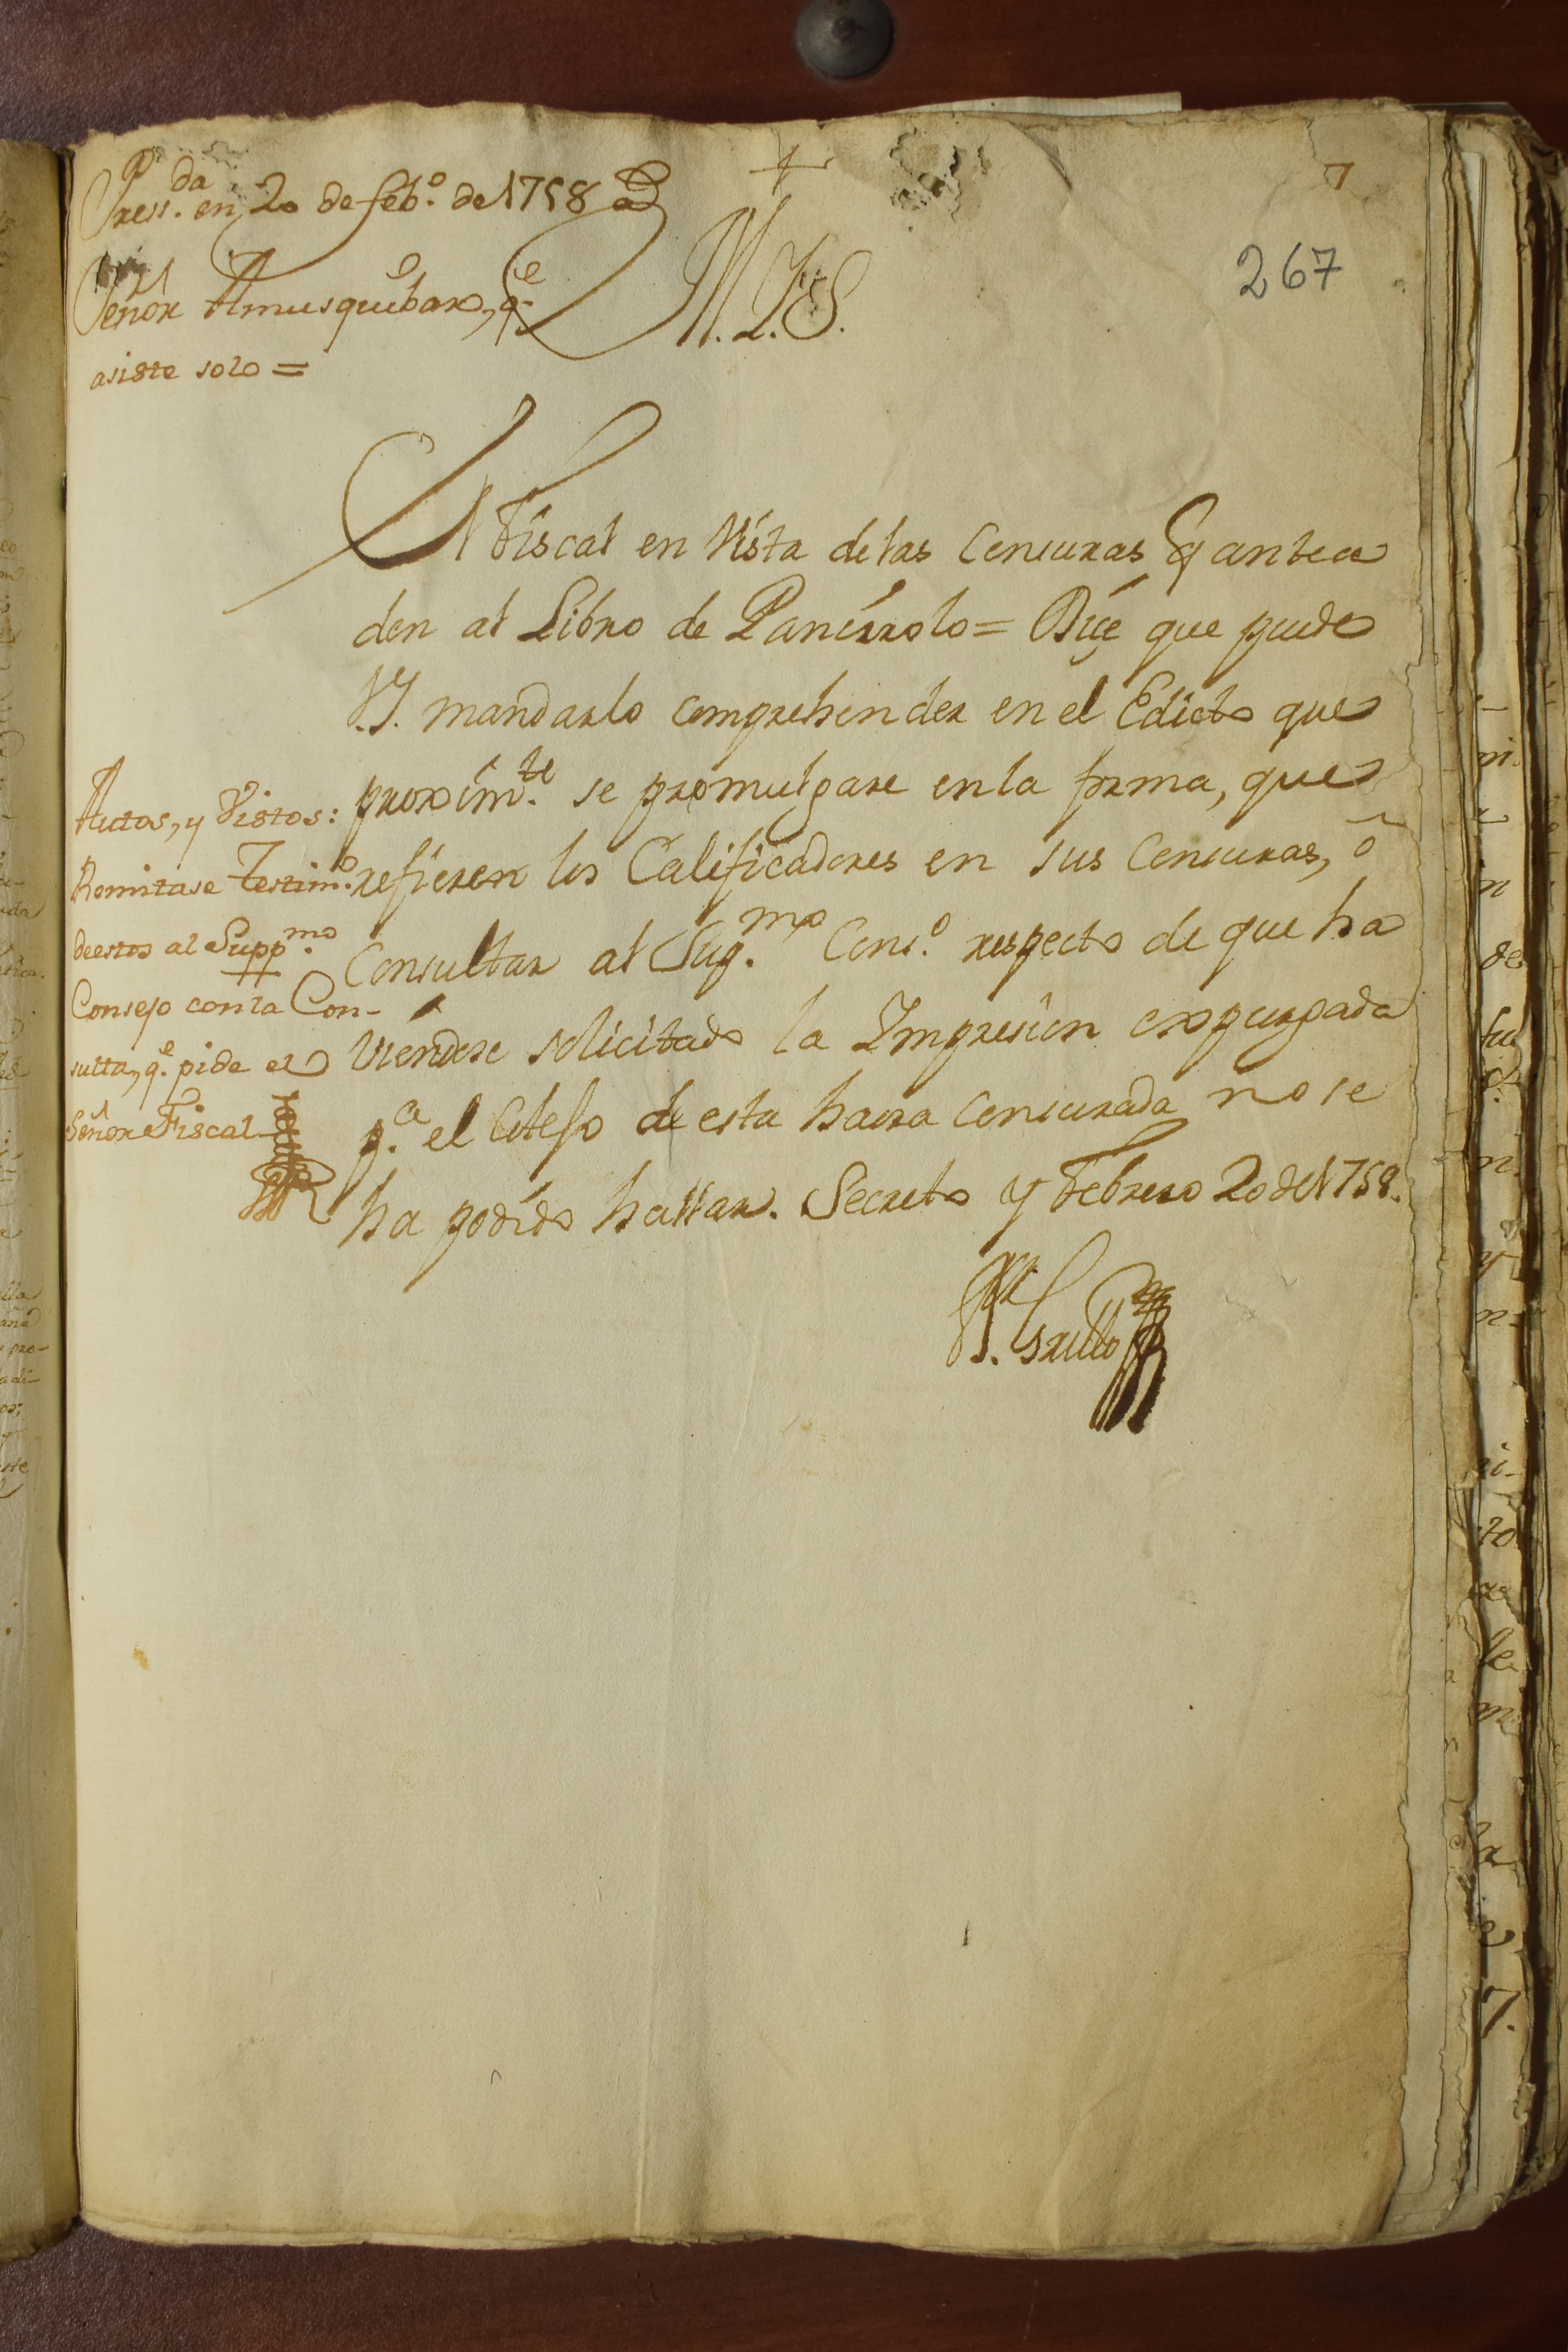 7
267
Press.da en 20 de feb.o de 1758
Señor Amusquibar, q.e
asiste solo =
M. I. S.
El Fiscal en vista de las Censuras q antece
den al Libro de Pancirolo = Dice que puede
V.S. mandarlo comprehender en el Edicto que
proxim.te se promulgare en la forma, que
refieren los Calificadores en sus Censuras, ô
Consultar al Sup.mo Cons.o respecto de que ha
viendose solicitado la Impresion expurgada
p.a el Cotejo de esta haora Censurada no se
ha podido hallar. Secreto y Febrero 20 de 1758.
Grillo
Autos, y Vistos:
Remitase Testim.o
de estos al Supp.mo
Consejo con la Con-
sulta, q.e pide el
Señor Fiscal